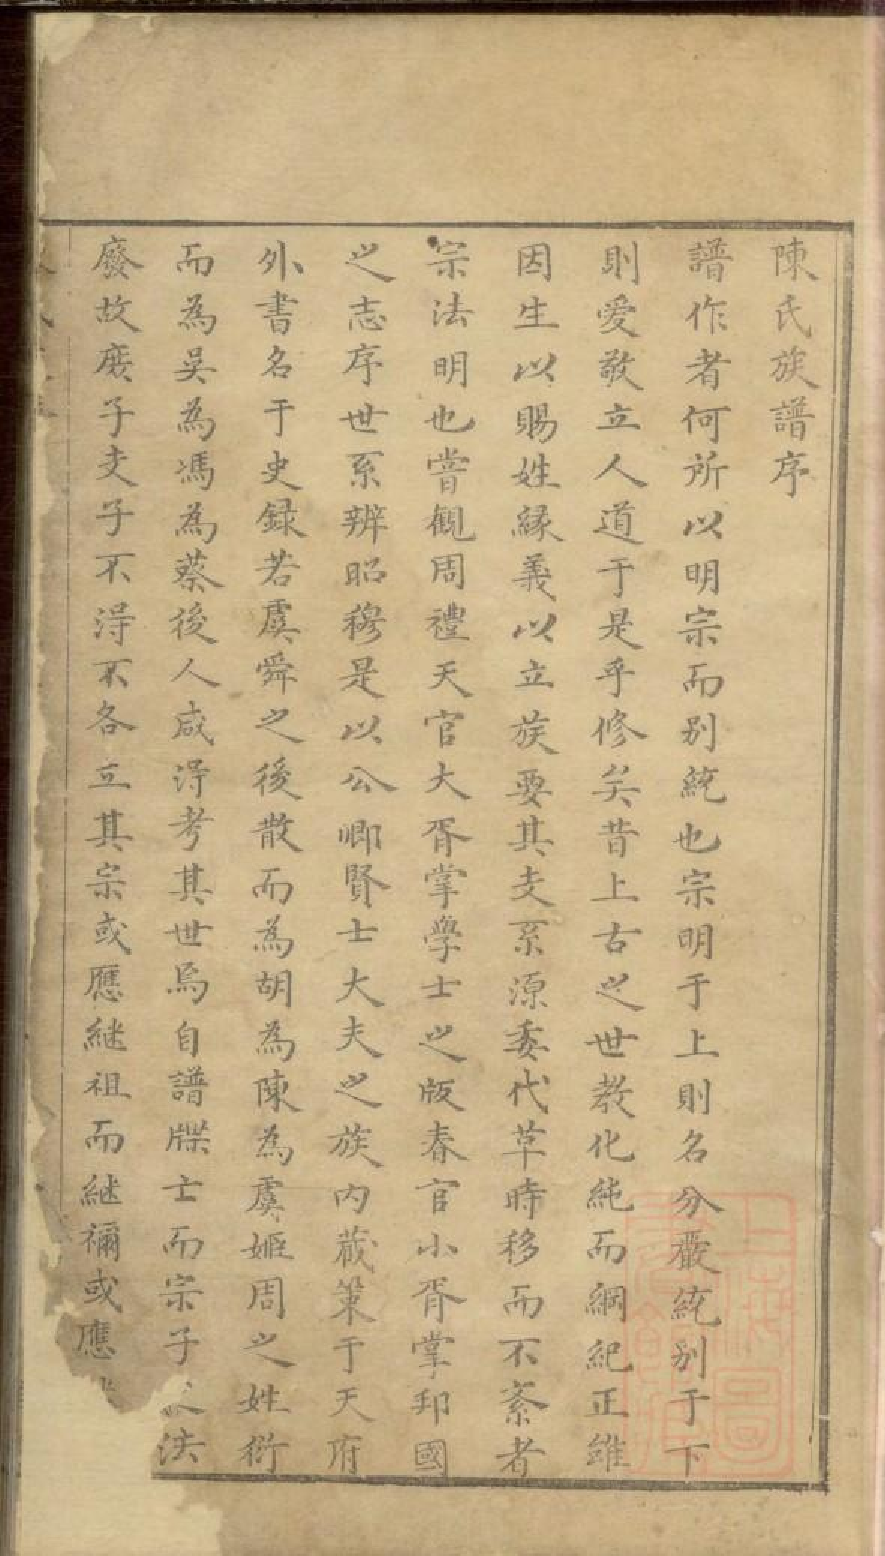 陳氏族譜序
譜作者何所以明宗而别統也宗明于上則名分嚴統别于下
則愛敬立人道于是乎修矣昔上古之世教化純而綱紀正維
因生以賜姓緣義以立族要其支系源委代革時移而不紊者
宗法明也嘗觀周禮天官大胥掌學士之版春官小胥掌邦國
之志序世系辨昭穆是以公卿賢士大夫之族内蔵策于天府
外書名于史録若虞舜之後散而為胡為陳為虞姬周之姓衍
而為吴為馮為蔡後人咸淂考其世焉自譜牒士而宗子之法
廢故庻子支子不淂不各立其宗或應継祖而継禰或應
上海圖書館藏